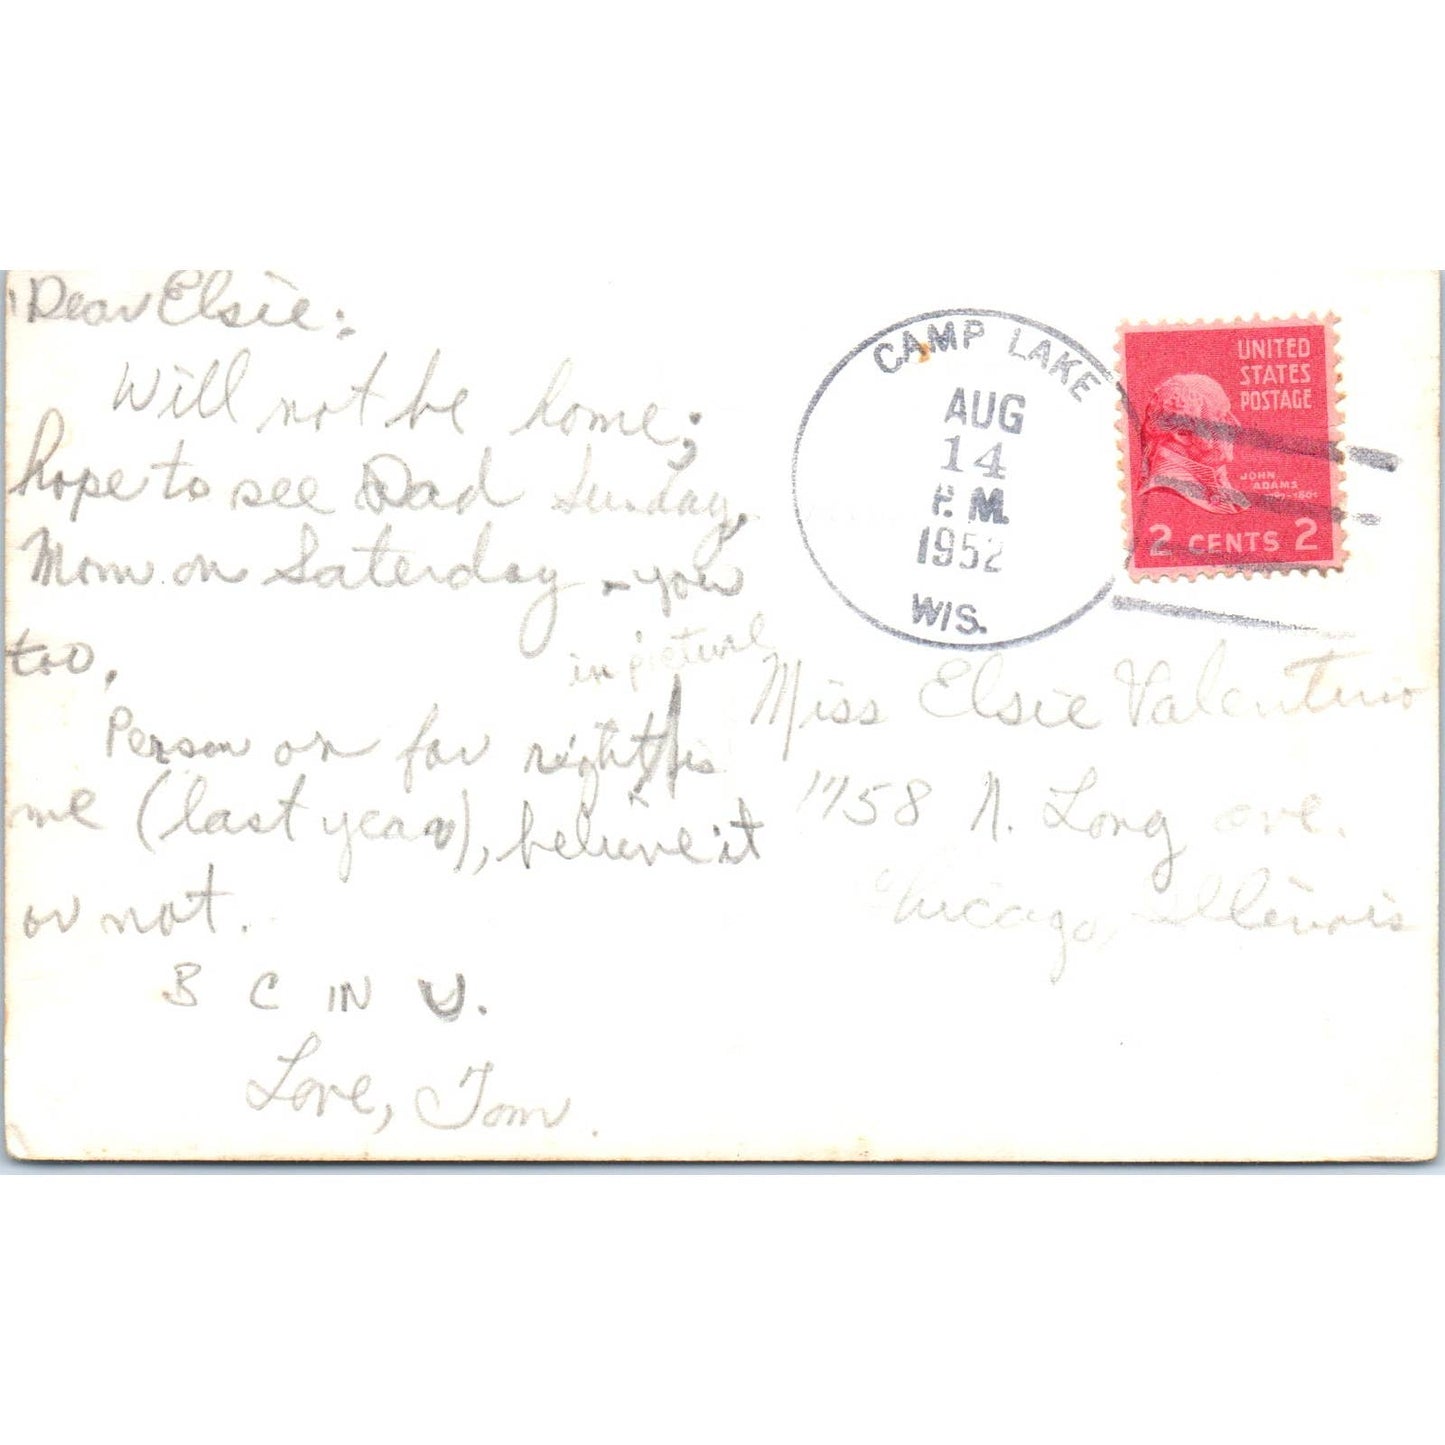 Dear Elsie:
Will not be home;
hope to see Dad Sunday,
Mom on Saterday - you
too.
in picture
Person on far right is
me (last year), believe it
or not.
B C IN U.
Love, Tom.
CAMP LAKE
AUG
14
P.M.
1952
WIS.
UNITED
STATES
POSTAGE
JOHN
ADAMS
2 CENTS 2
Miss Elsie Valentino
1758 N. Long ave.
Chicago, Illinois